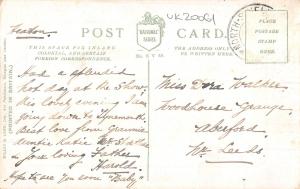 UK2061
Heaton.
POST CARD.
NATIONAL SERIES
THIS SPACE FOR INLAND,
COLONIAL, AND CERTAIN
FOREIGN CORRESPONDENCE.
THE ADDRESS ONLY
TO BE WRITTEN HERE.
PLACE
POSTAGE
STAMP
HERE
Had a splendid
hot day at the show,
this lovely evening I am
going down to Tynemouth
Best love from Grannie
Auntie Katie
your loving Father
Harold
Hope to see you soon "Baby"
Miss Dora Walker
Woodhouse Grange
Aberford
Nr. Leeds
(PRINTED IN BRITAIN.)